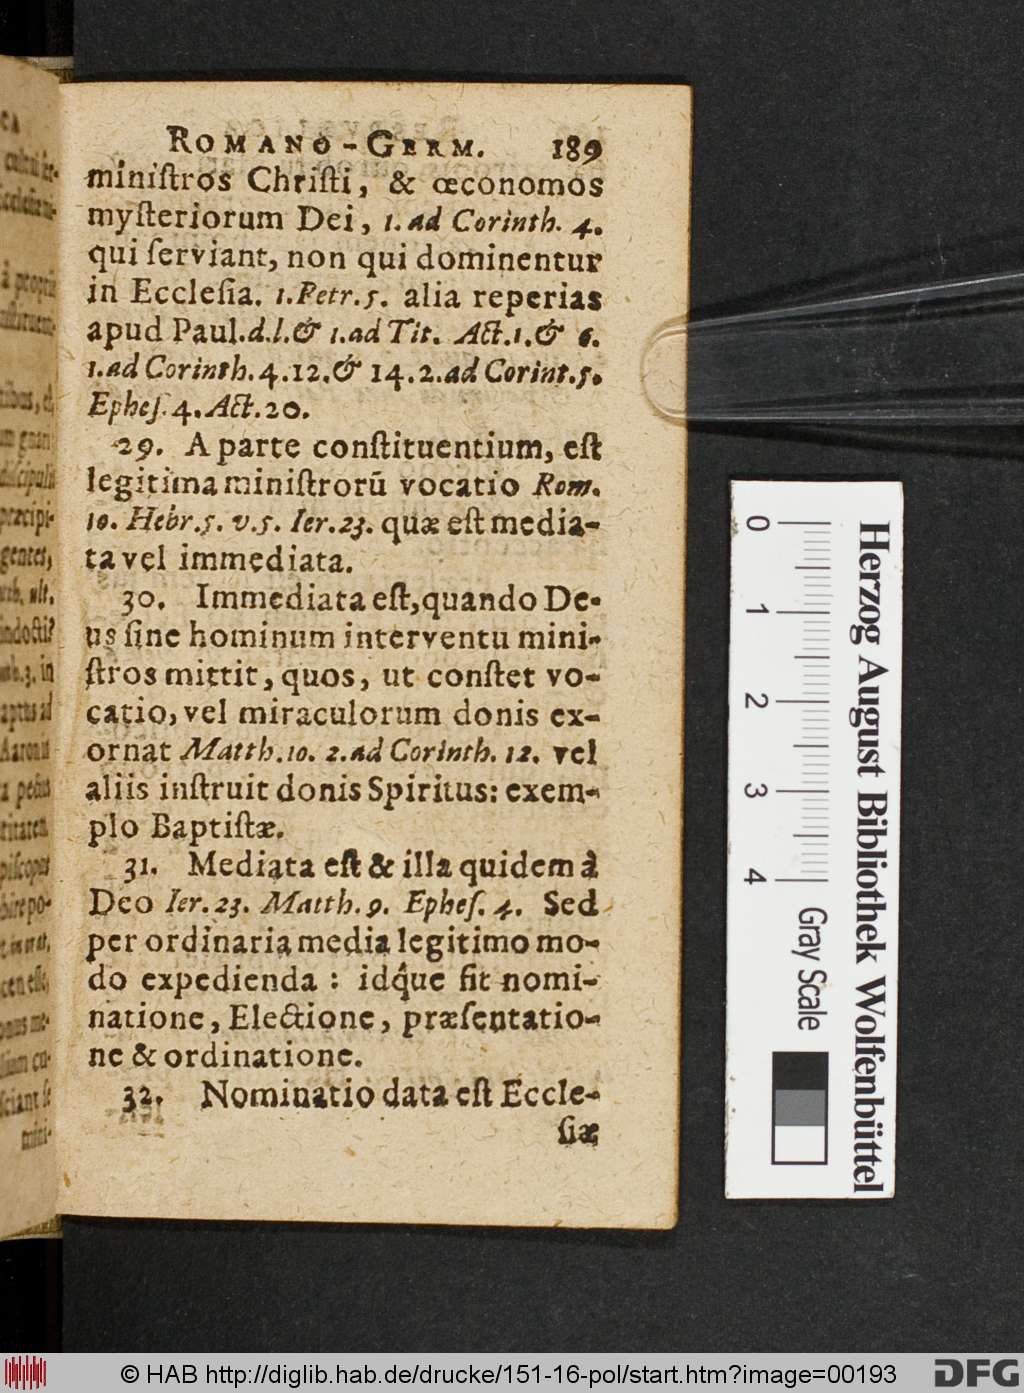 ROMANO-GERM. 189
miniſtros Chriſti, & œconomos
myſteriorum Dei, 1. ad Corinth. 4.
qui ſerviant, non qui dominentur
in Eccleſia. 1. Petr. 5. alia reperias
apud Paul. d.l. & 1. ad Tit. Act. 1. & 6.
1. ad Corinth. 4. 12. & 14. 2. ad Corint. 5.
Epheſ. 4. Act. 20.
29. A parte conſtituentium, eſt
legitima miniſtrorū vocatio Rom.
10. Hebr. 5. v. 5. Ier. 23. quæ eſt media-
ta vel immediata.
30. Immediata eſt, quando De-
us ſine hominum interventu mini-
ſtros mittit, quos, ut conſtet vo-
catio, vel miraculorum donis ex-
ornat Matth. 10. 2. ad Corinth. 12. vel
aliis inſtruit donis Spiritus: exem-
plo Baptiſtæ.
31. Mediata eſt & illa quidem à
Deo Ier. 23. Matth. 9. Epheſ. 4. Sed
per ordinaria media legitimo mo-
do expedienda : idq́ue fit nomi-
natione, Electione, præſentatio-
ne & ordinatione.
32. Nominatio data eſt Eccle-
ſiæ
Herzog August Bibliothek Wolfenbüttel
0 1 2 3 4
Gray Scale
© HAB http://diglib.hab.de/drucke/151-16-pol/start.htm?image=00193
DFG